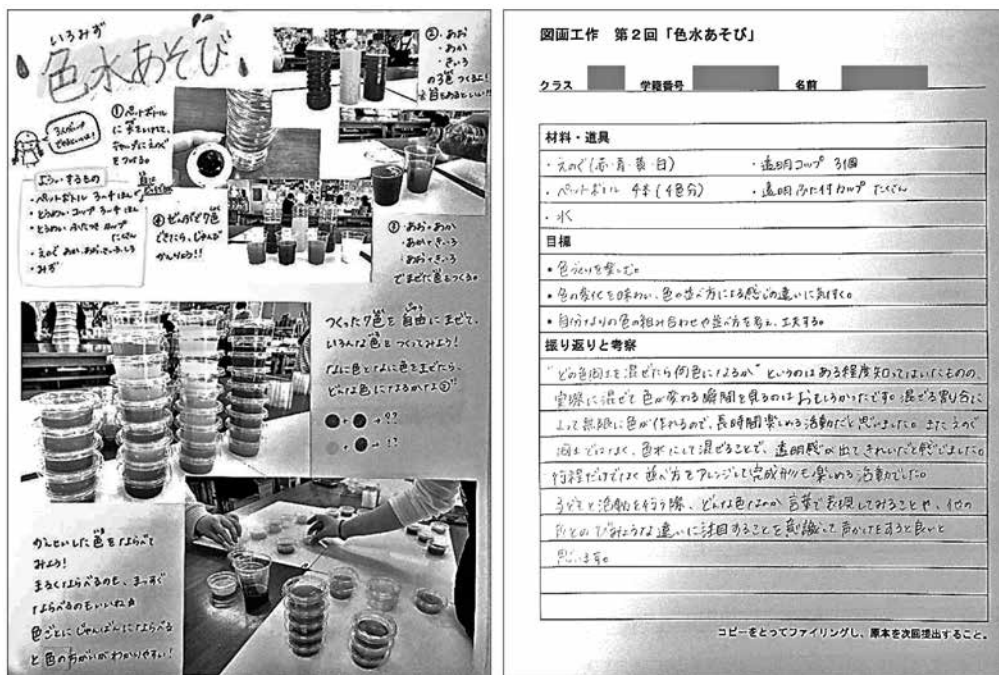 いろみず
色水あそび
①ペットボトル
に水をいれて、
キャップにえのぐ
をつける。
②・あお
・あか
・きいろ
の3色つくるよ!
よういするもの
・ペットボトル 3〜4ほん
・とうめいコップ 3〜4ほん
・とうめい ふたつきカップ
たくさん
・えのぐ あか、あお、きいろ、しろ
・みず
③・あお+あか
・あか+きいろ
・あお+きいろ
でまぜた色をつくる。
④ぜんぶで7色
できたら、じゅんび
かんりょう!!
つくった7色を自由にまぜて、
いろんな色をつくってみよう!
なに色となに色をまぜたら、
どんな色になるかな
+ → ??
+ → !?
かんせいした色をならべて
みよう!
まるくならべるのも、まっすぐ
ならべるのもいいね☆
色ごとにじゅんばんにならべる
と色のちがいがわかりやすい!
図画工作 第2回「色水あそび」
クラス 学籍番号 名前
材料・道具
・えのぐ(赤・青・黄・白) ・透明コップ 3個
・ペットボトル 4本(4色分) ・透明ふた付カップ たくさん
・水
目標
・色づくりを楽しむ。
・色の変化を味わい、色の並べ方による感じの違いに気付く。
・自分なりの色の組み合わせや並べ方を考え、工夫する。
振り返りと考察
"どの色同士を混ぜたら何色になるか"というのはある程度知ってはいたものの、
実際に混ぜて色が変わる瞬間を見るのはおもしろかったです。混ぜる割合に
よって無限に色が作れるので、長時間楽しめる活動だと思いました。またえのぐ
同士ではなく、色水にして混ぜることで、透明感が出てきれいだと感じました。
行程だけでなく並べ方をアレンジして完成形も楽しめる活動でした。
子どもと活動を行う際、どんな色なのか言葉で表現してみることや、他の
色とのびみょうな違いに注目することを意識して声かけをすると良いと
思います。
コピーをとってファイリングし、原本を次回提出すること。